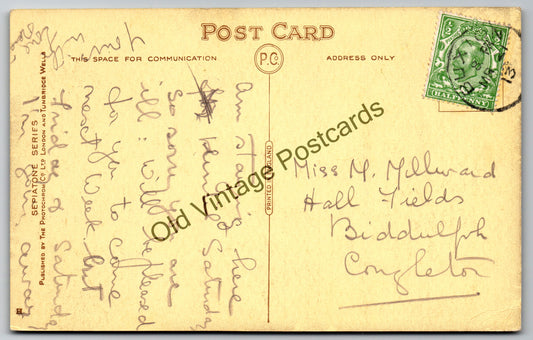 POST CARD
THIS SPACE FOR COMMUNICATION
P.C.
ADDRESS ONLY
HALFPENNY
BUX
13
Am staying here
till Saturday
So sorry you are
ill: will be pleased
for you to come
next week but
Friday & Saturday
I'm going away
Love
Miss M. Millward
Hall Fields
Biddulph
Congleton
PRINTED IN ENGLAND
SEPIATONE SERIES
PUBLISHED BY THE PHOTOCHROM CO. LTD. LONDON AND TUNBRIDGE WELLS
Old Vintage Postcards